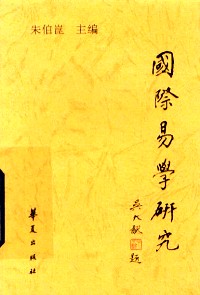 朱伯崑 主编
國際易學研究
吴大猷题
華夏出版社